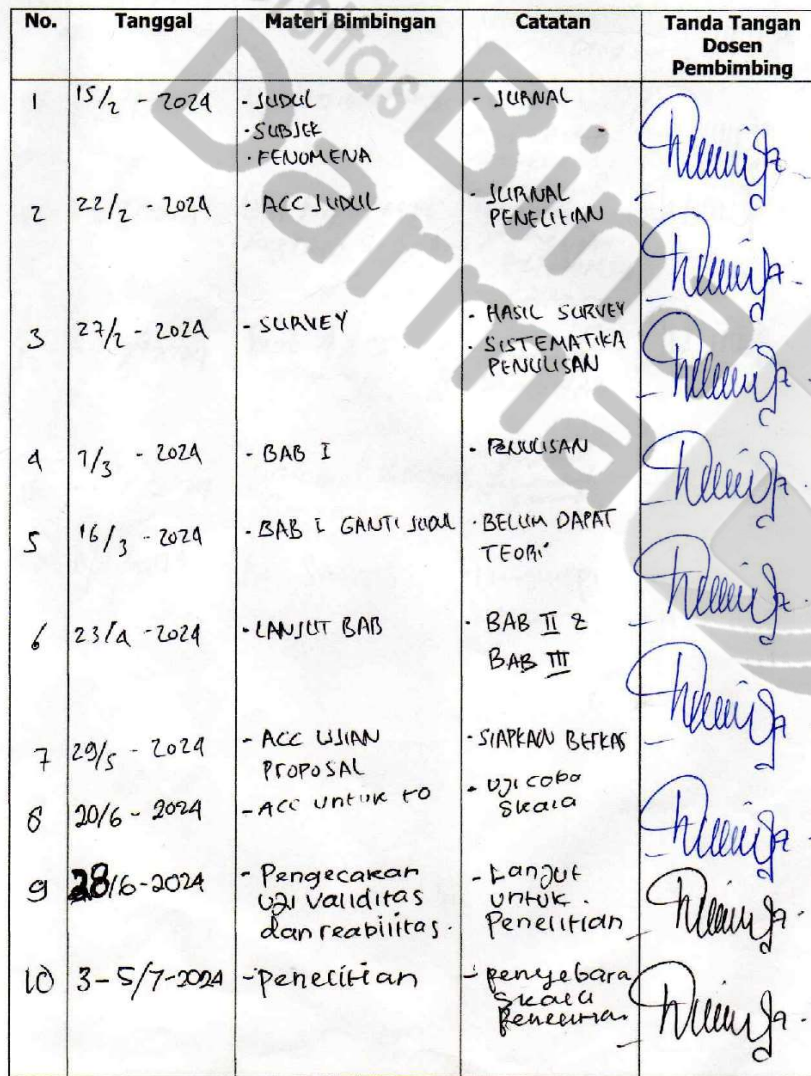 No. Tanggal Materi Bimbingan Catatan Tanda Tangan Dosen Pembimbing
Universitas Bina Darma
1 15/2 - 2024 - JUDUL - JURNAL
- SUBJEK
- FENOMENA
2 22/2 - 2024 - ACC JUDUL - JURNAL
PENELITIAN
3 27/2 - 2024 - SURVEY - HASIL SURVEY
- SISTEMATIKA
PENULISAN
4 7/3 - 2024 - BAB I - PENULISAN
5 16/3 - 2024 - BAB I GANTI JUDUL - BELUM DAPAT
TEORI
6 23/4 - 2024 - LANJUT BAB - BAB II &
BAB III
7 29/5 - 2024 - ACC UJIAN - SIAPKAN BERKAS
PROPOSAL
8 20/6 - 2024 - ACC untuk TO - Uji coba
skala
9 28/6-2024 - Pengecekan - Lanjut
uji validitas untuk
dan reabilitas. Penelitian
10 3-5/7-2024 - Penelitian - penyebara
skala
Penelitian